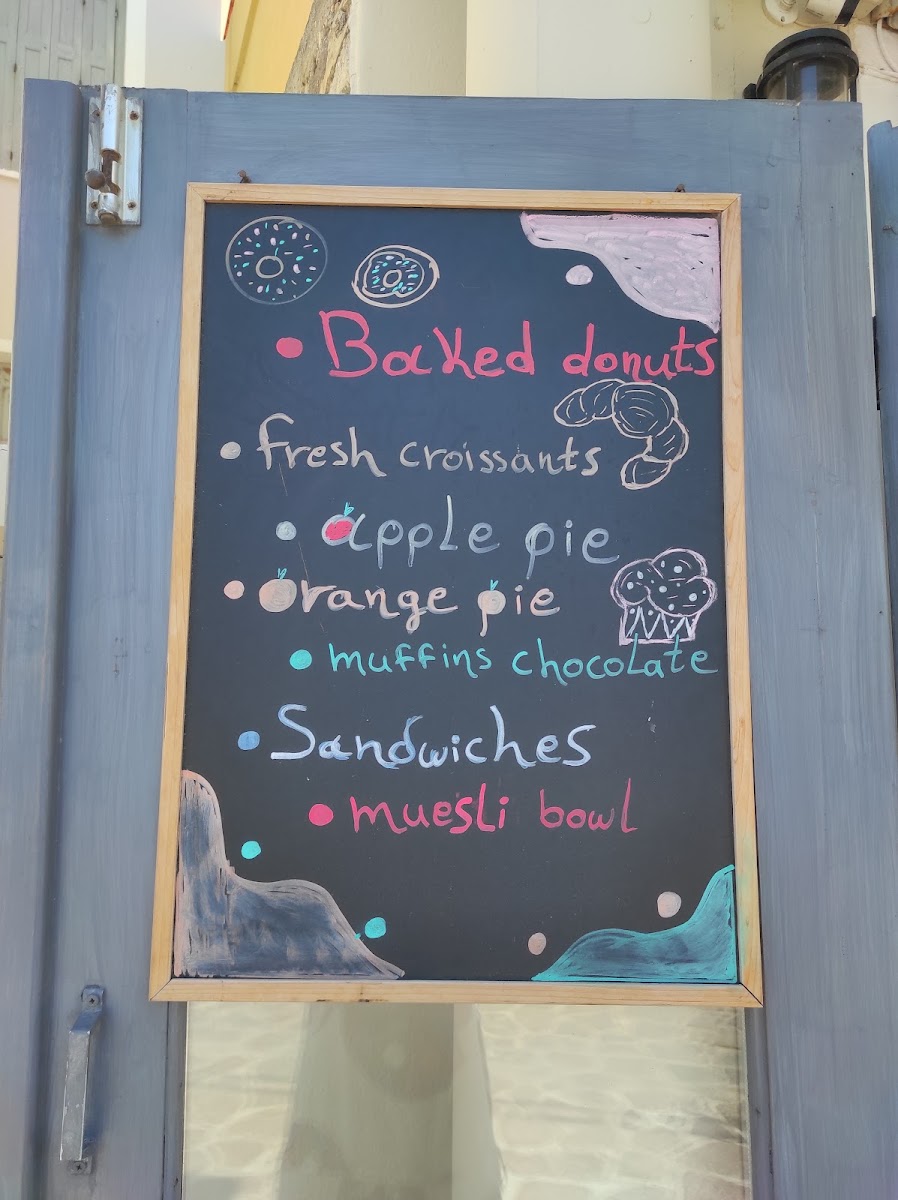 • Baked donuts
• fresh croissants
• apple pie
• Orange pie
• muffins chocolate
• Sandwiches
• muesli bowl